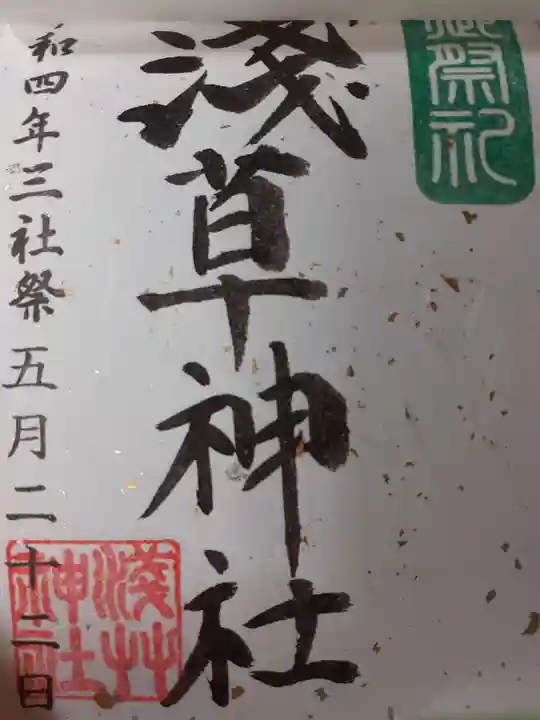 御祭礼
浅草神社
和四年三社祭五月二十二日
浅草
神社